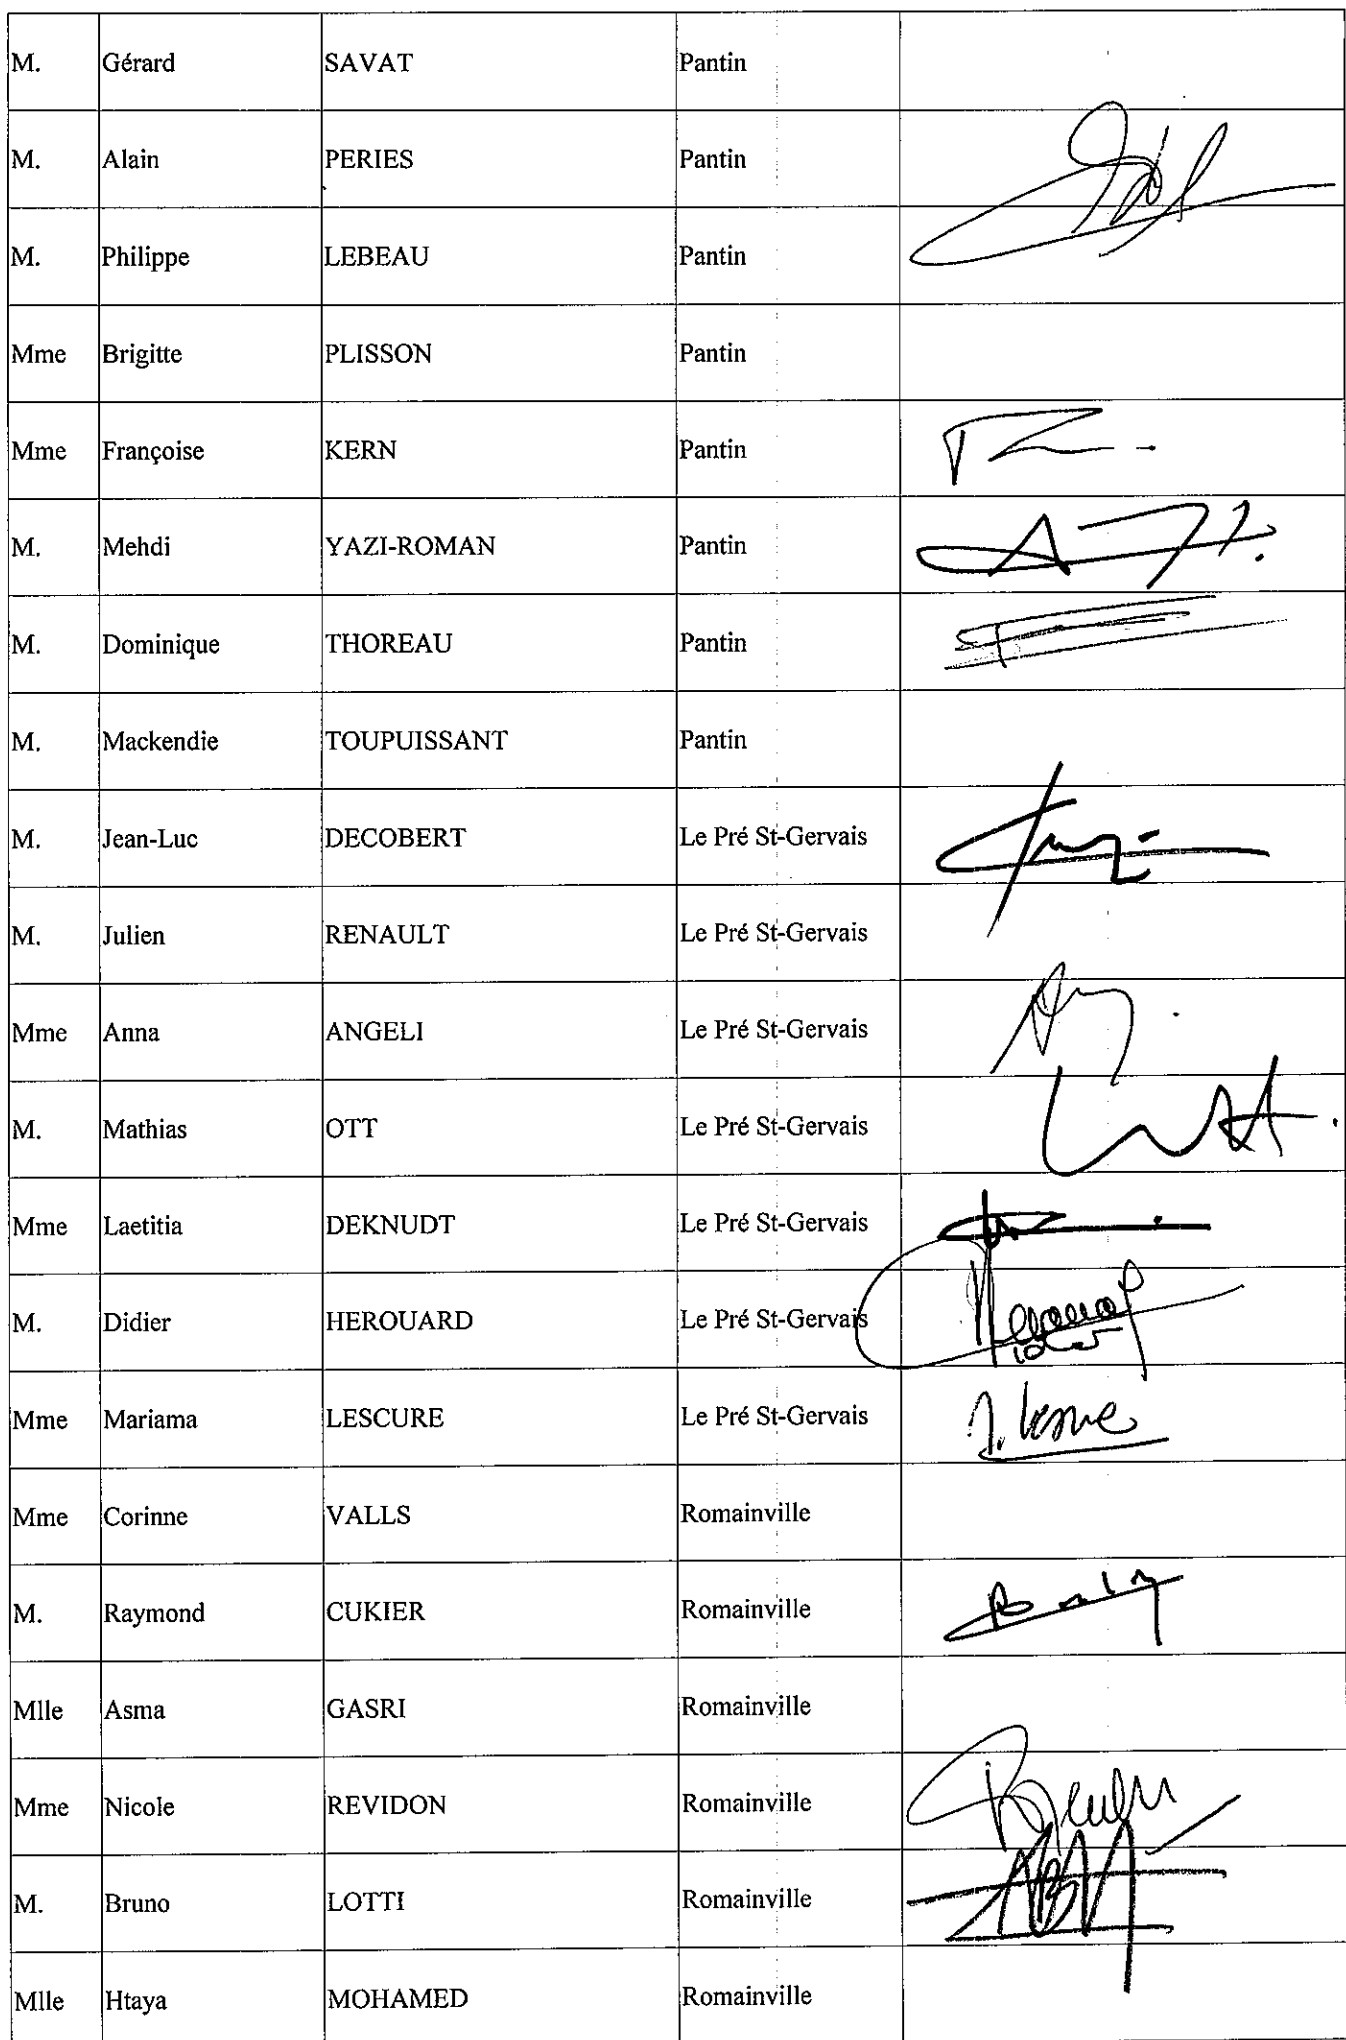 M. Gérard SAVAT Pantin
M. Alain PERIES Pantin
M. Philippe LEBEAU Pantin
Mme Brigitte PLISSON Pantin
Mme Françoise KERN Pantin
M. Mehdi YAZI-ROMAN Pantin
M. Dominique THOREAU Pantin
M. Mackendie TOUPUISSANT Pantin
M. Jean-Luc DECOBERT Le Pré St-Gervais
M. Julien RENAULT Le Pré St-Gervais
Mme Anna ANGELI Le Pré St-Gervais
M. Mathias OTT Le Pré St-Gervais
Mme Laetitia DEKNUDT Le Pré St-Gervais
M. Didier HEROUARD Le Pré St-Gervais
Mme Mariama LESCURE Le Pré St-Gervais
Mme Corinne VALLS Romainville
M. Raymond CUKIER Romainville
Mlle Asma GASRI Romainville
Mme Nicole REVIDON Romainville
M. Bruno LOTTI Romainville
Mlle Htaya MOHAMED Romainville